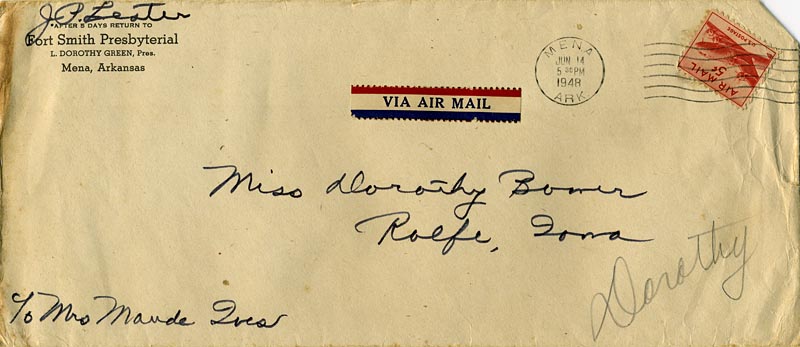 J.P. Lester
AFTER 5 DAYS RETURN TO
Fort Smith Presbyterial
L. DOROTHY GREEN, Pres.
Mena, Arkansas
MENA
JUN 14
5 PM
1948
ARK
U.S. POSTAGE
AIR MAIL
5¢
VIA AIR MAIL
Miss Dorothy Bomer
Rolfe, Iowa
Dorothy
℅ Mrs Maude Ives